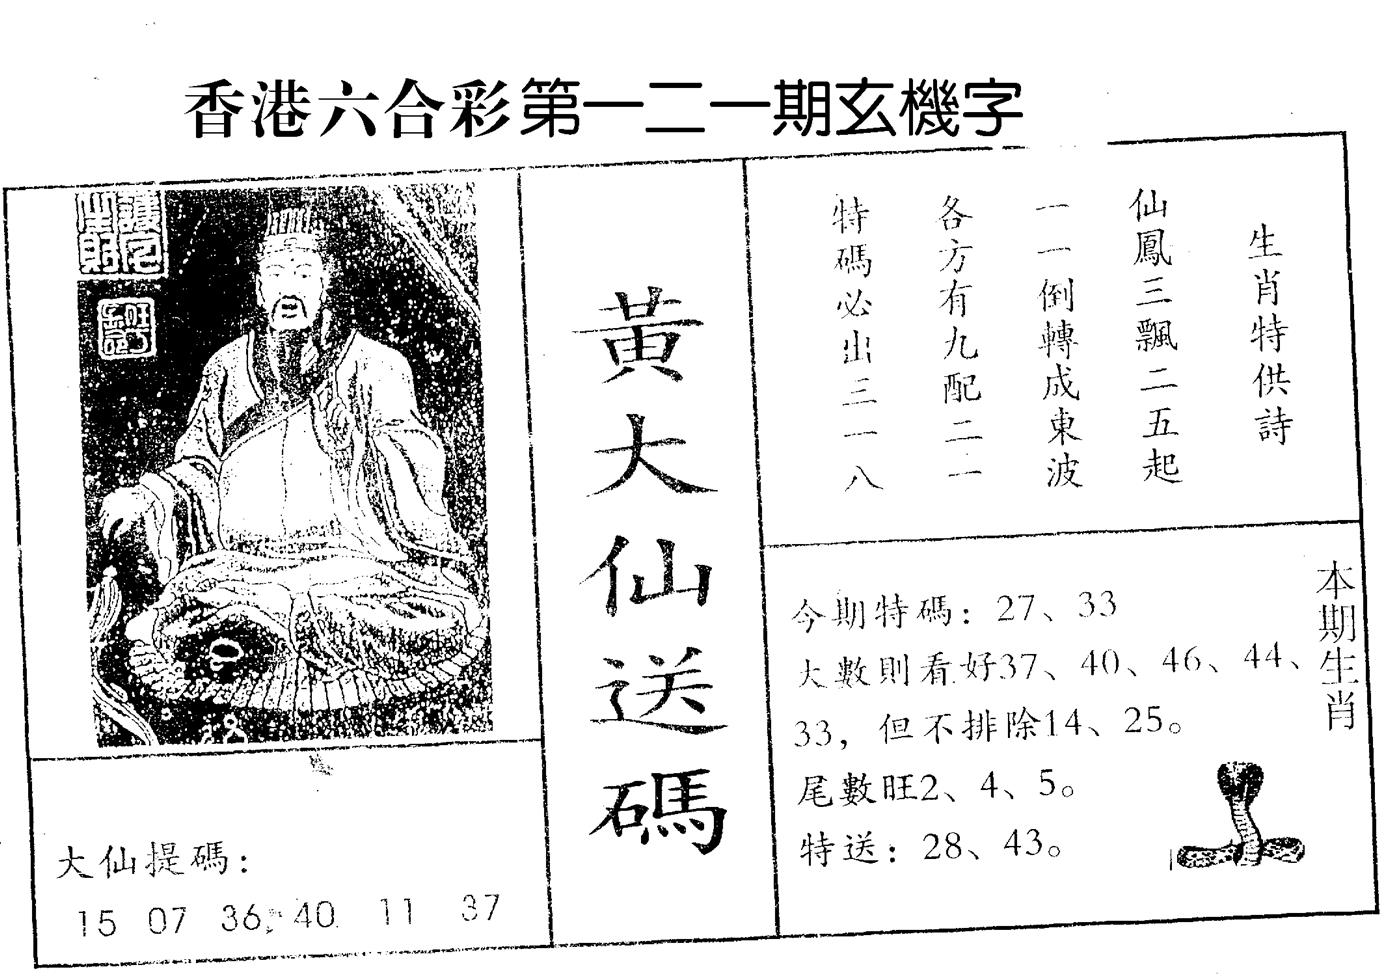 香港六合彩第一二一期玄機字
黃大仙送碼
生肖特供詩
仙鳳三飄二五起
一一倒轉成東波
各方有九配二一
特碼必出三一八
本期生肖
今期特碼：27、33
大數則看好37、40、46、44、
33，但不排除14、25。
尾數旺2、4、5。
特送：28、43。
大仙提碼：
15 07 36 40 11 37